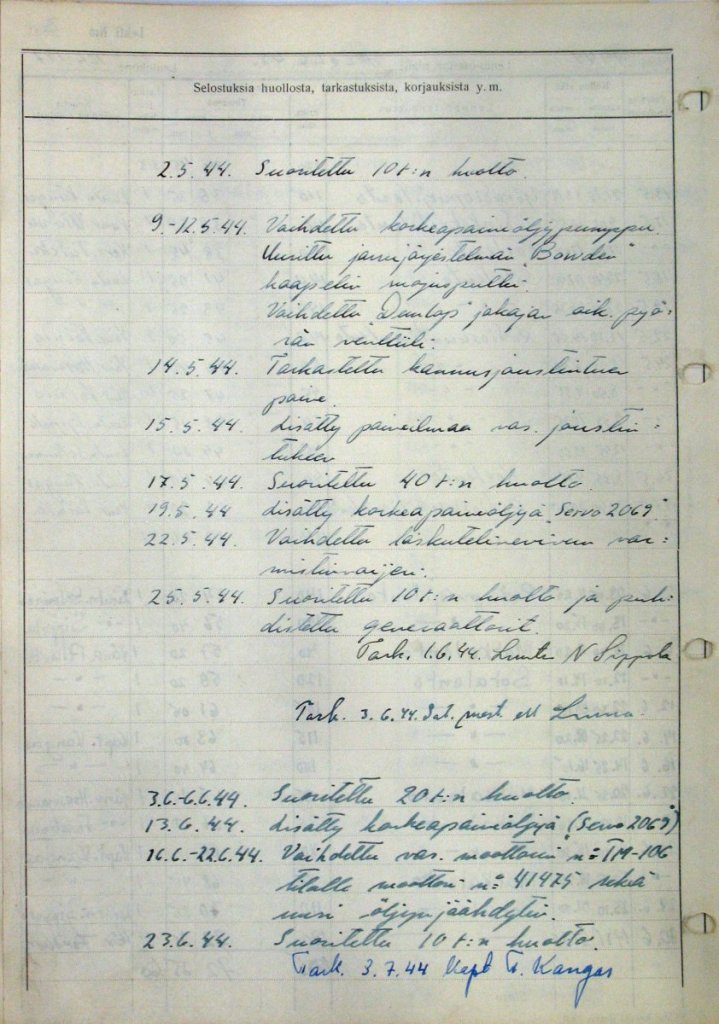 Selostuksia huollosta, tarkastuksista, korjauksista y.m.
2.5.44. Suoritettu 10 t:n huolto.
9.-12.5.44. Vaihdettu korkeapaineöljypumppu.
Uusittu jarrujärjestelmän "Bowden"
kaapelin suojusputki.
Vaihdettu "Dunlop" jakajan oik. pyö-
rän venttiili.
14.5.44. Tarkastettu kannusjoustintuen
paine.
15.5.44. Lisätty paineilmaa vas. joustin-
tukeen
17.5.44. Suoritettu 40 t:n huolto.
19.5.44 Lisätty korkeapaineöljyä "Servo 2069"
22.5.44. Vaihdettu laskutelinevivun var-
mistinvaijeri.
25.5.44. Suoritettu 10 t:n huolto ja puh-
distettu generaattorit.
Tark. 1.6.44. N Sippola
Tark. 3.6.44. mest.
3.6.-6.6.44. Suoritettu 20 t:n huolto.
13.6.44. Lisätty korkeapaineöljyä (Servo 2069)
16.6.-22.6.44. Vaihdettu vas. moottorin n:o TM-106
tilalle moottori n:o 41475 sekä
uusi öljynjäähdytin.
23.6.44. Suoritettu 10 t:n huolto.
Tark. 3.7.44 Kapt T. Kangas